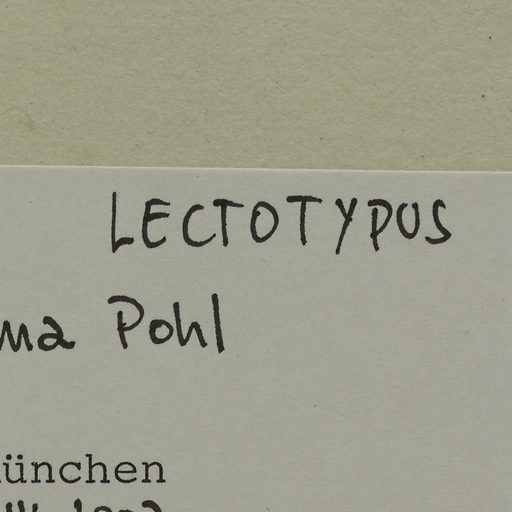 LECTOTYPUS
ma Pohl
ünchen